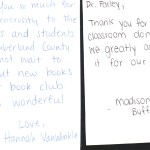 You so much for
generosity to the
s and students
berland County.
not wait to
out new books
book club
wonderful
Love,
Hannah VanWinkle
Dr. Farley,
Thank you for
classroom don
we greatly a
it for our
- madison
Buff